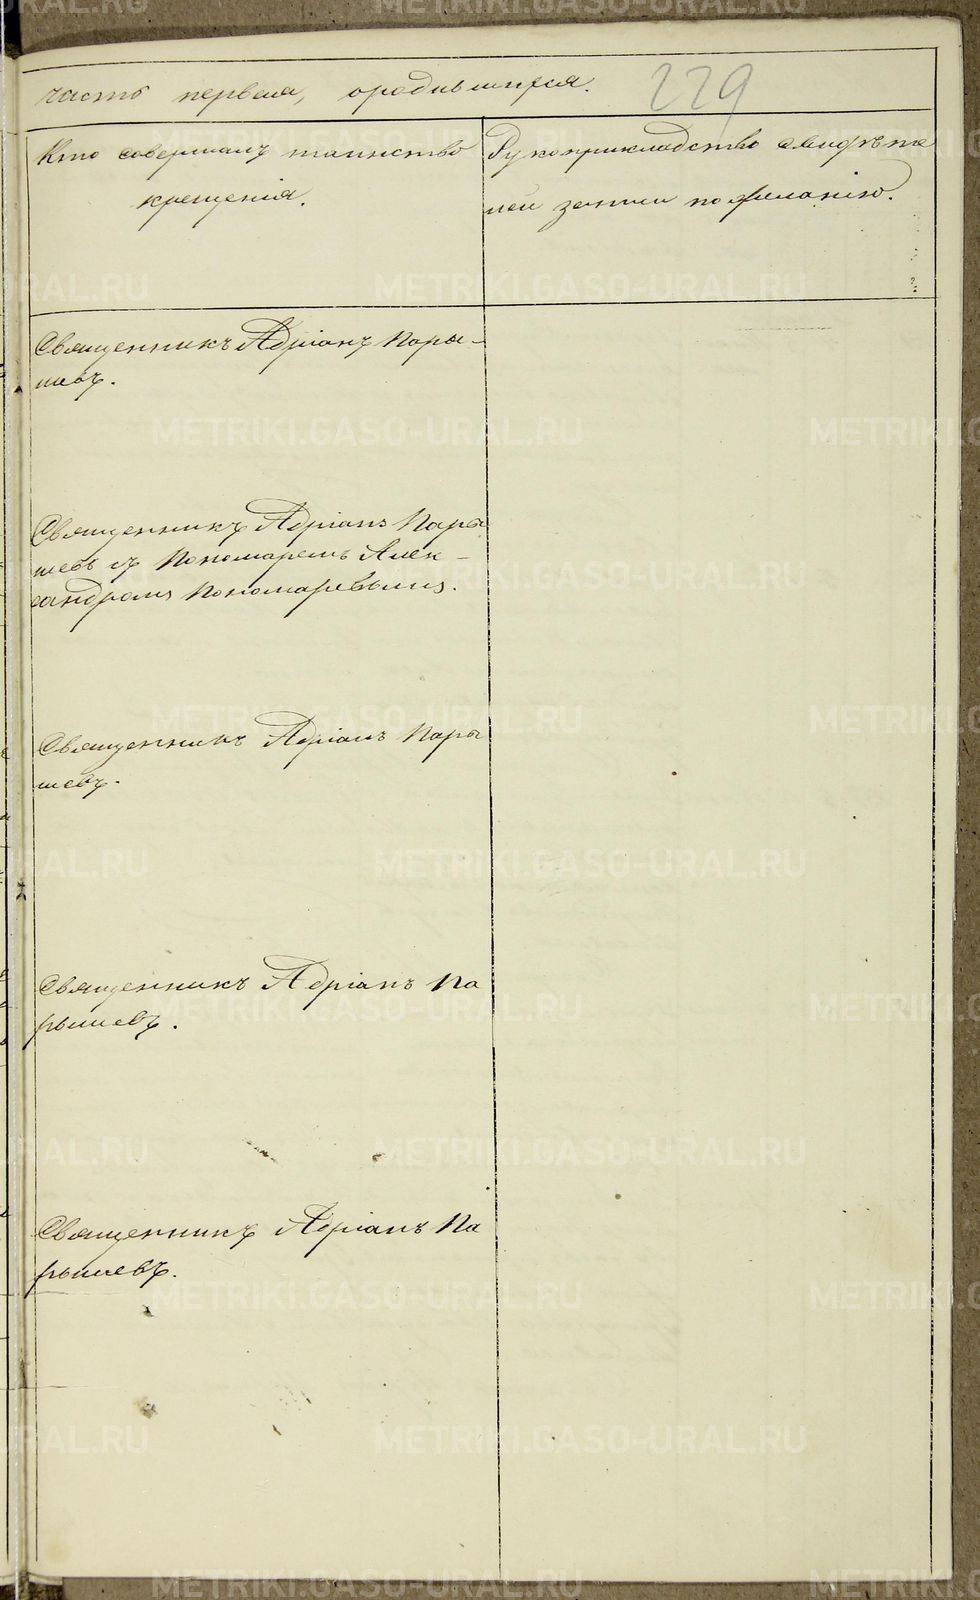 часть первая, ородившихся. 229
Кто совершалъ таинство
крещенія.
Рукоприкладство свидѣте
лей записи по желанію.
Священникъ Адріанъ Пары-
шевъ.
Священникъ Адріанъ Пары
шевъ съ Пономаремъ Алек-
сандромъ Пономаревымъ.
Священникъ Адріанъ Пары
шевъ.
Священникъ Адріанъ Па
рышевъ.
Священникъ Адріанъ Па
рышевъ.
METRIKI.GASO-URAL.RU